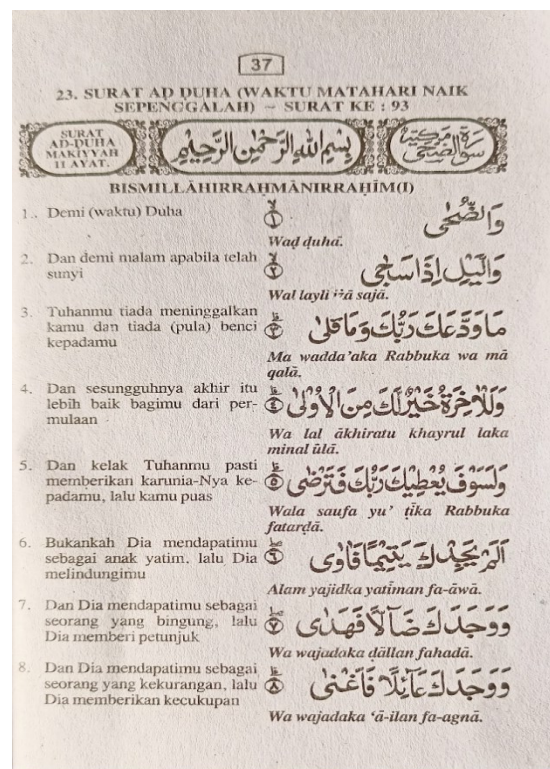 37
23. SURAT AD DUHA (WAKTU MATAHARI NAIK
SEPENGGALAH) ~ SURAT KE : 93
SURAT
AD-DUHA
MAKIYYAH
11 AYAT.
بِسْمِ اللهِ الرَّحْمٰنِ الرَّحِيْمِ
سورة الضحى مكية
BISMILLĀHIRRAḤMĀNIRRAḤĪM(I)
1.. Demi (waktu) Duha
وَالضُّحٰى ۝١
Waḍ ḍuḥā.
2. Dan demi malam apabila telah
sunyi
وَالَّيْلِ اِذَا سَجٰى ۝٢
Wal layli iżā sajā.
3. Tuhanmu tiada meninggalkan
kamu dan tiada (pula) benci
kepadamu
مَا وَدَّعَكَ رَبُّكَ وَمَا قَلٰى ۝٣
Ma wadda'aka Rabbuka wa mā
qalā.
4. Dan sesungguhnya akhir itu
lebih baik bagimu dari per-
mulaan
وَلَلْاٰخِرَةُ خَيْرٌ لَّكَ مِنَ الْاُوْلٰى ۝٤
Wa lal ākhiratu khayrul laka
minal ūlā.
5. Dan kelak Tuhanmu pasti
memberikan karunia-Nya ke-
padamu, lalu kamu puas
وَلَسَوْفَ يُعْطِيْكَ رَبُّكَ فَتَرْضٰى ۝٥
Wala saufa yu' ṭika Rabbuka
fatarḍā.
6. Bukankah Dia mendapatimu
sebagai anak yatim, lalu Dia
melindungimu
اَلَمْ يَجِدْكَ يَتِيْمًا فَاٰوٰى ۝٦
Alam yajidka yatīman fa-āwā.
7. Dan Dia mendapatimu sebagai
seorang yang bingung, lalu
Dia memberi petunjuk
وَوَجَدَكَ ضَآلًّا فَهَدٰى ۝٧
Wa wajadaka ḍāllan fahadā.
8. Dan Dia mendapatimu sebagai
seorang yang kekurangan, lalu
Dia memberikan kecukupan
وَوَجَدَكَ عَآئِلًا فَاَغْنٰى ۝٨
Wa wajadaka ‘ā-ilan fa-agnā.